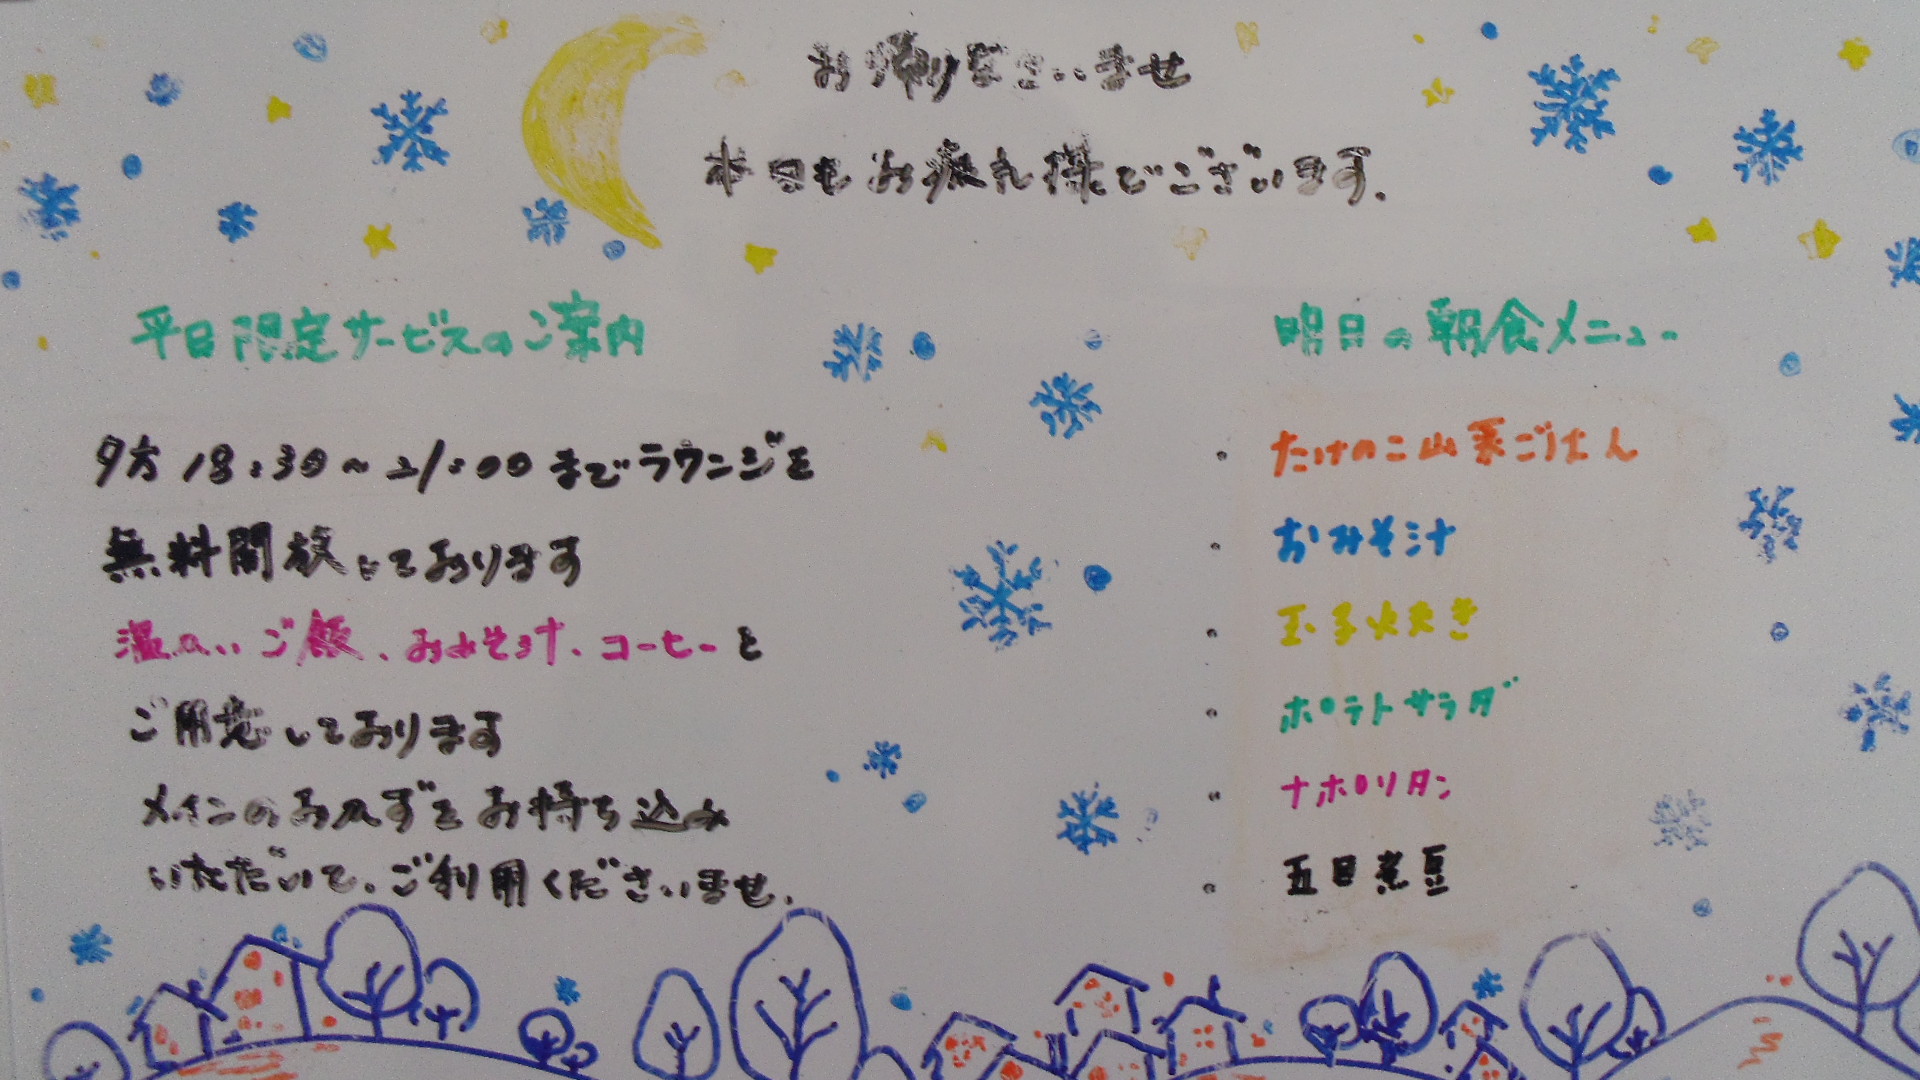 お帰りなさいませ
本日もお疲れ様でございます.
平日限定サービスのご案内
夕方 18:30～21:00 までラウンジを
無料開放しております
温かいご飯、おみそ汁、コーヒーを
ご用意しております
メインのおかずをお持ち込み
いただいて、ご利用くださいませ.
明日の朝食メニュー
・たけのこ山菜ごはん
・おみそ汁
・玉子焼き
・ポテトサラダ
・ナポリタン
・五目煮豆